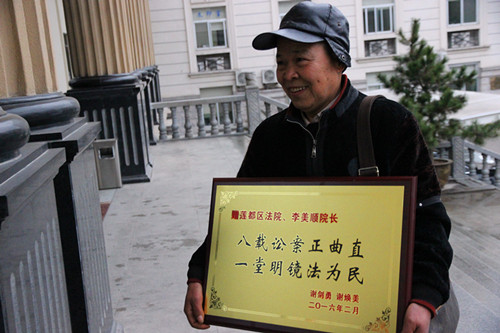 赠莲都区法院、李美顺院长
八载讼案正曲直
一堂明镜法为民
谢剑勇 谢焕美
二〇一六年二月